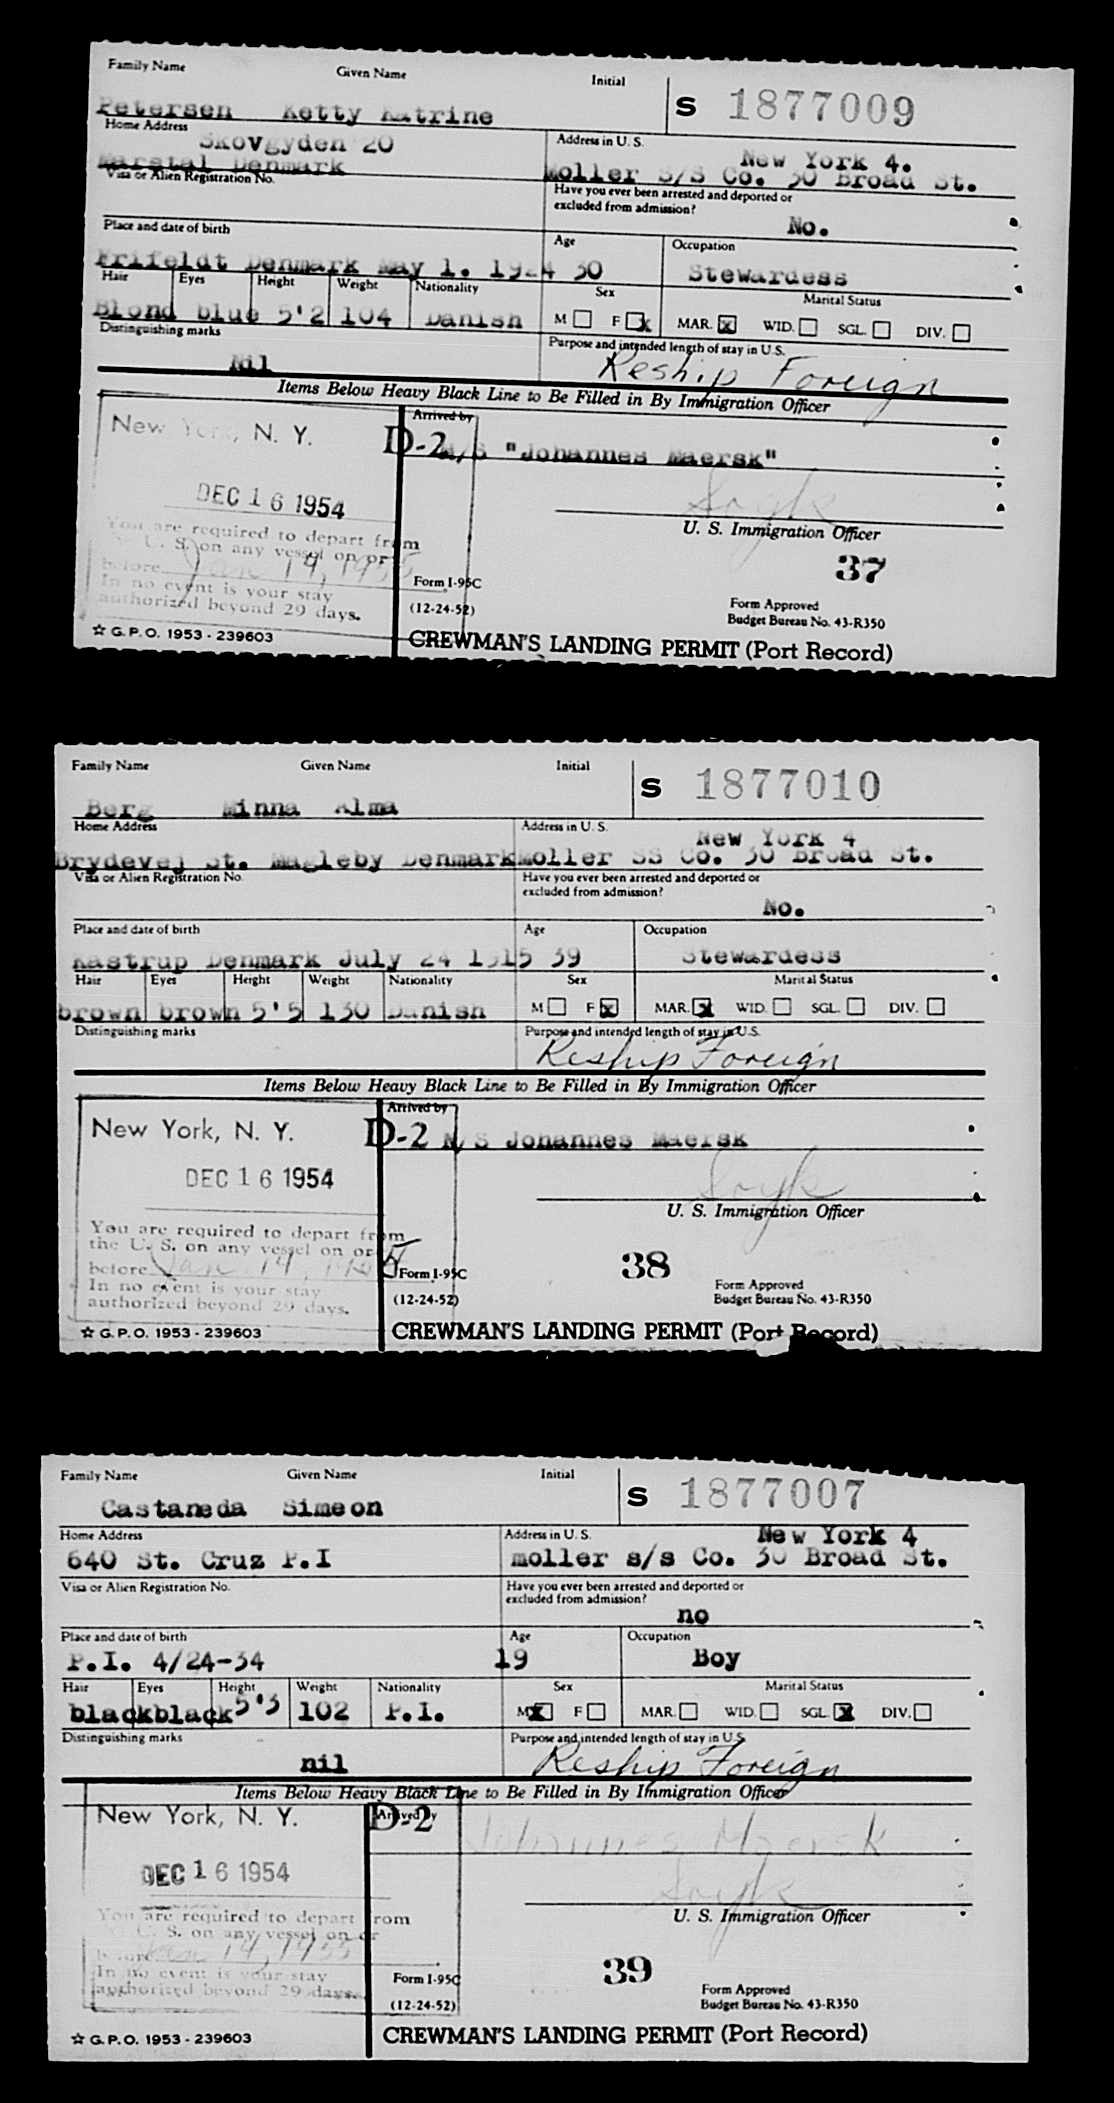 Family Name Given Name Initial
S 1877009
Petersen Ketty Katrine
Home Address
Skovgyden 20
Marstal Denmark
Address in U. S.
New York 4.
Moller S/S Co. 30 Broad St.
Visa or Alien Registration No.
Have you ever been arrested and deported or
excluded from admission?
No.
Place and date of birth Age Occupation
Denmark May 1. 1924 30 Stewardess
Hair Eyes Height Weight Nationality Sex Marital Status
Blond blue 5'2 104 Danish M F x MAR. x WID. SGL. DIV.
Distinguishing marks
Nil
Purpose and intended length of stay in U.S.
Reship Foreign
Items Below Heavy Black Line to Be Filled in By Immigration Officer
New York, N. Y.
DEC 16 1954
You are required to depart from
U. S. on any vessel on or
before Jan 14, 1955
In no event is your stay
authorized beyond 29 days.
☆ G.P.O. 1953 - 239603
Arrived by
D-2 M/S "Johannes Maersk"
U. S. Immigration Officer
37
Form I-95C
(12-24-52)
Form Approved
Budget Bureau No. 43-R350
CREWMAN'S LANDING PERMIT (Port Record)
Family Name Given Name Initial
S 1877010
Berg Minna Alma
Home Address
Brydevej St. Magleby Denmark
Address in U. S.
New York 4
Moller SS Co. 30 Broad St.
Visa or Alien Registration No.
Have you ever been arrested and deported or
excluded from admission?
No.
Place and date of birth Age Occupation
Kastrup Denmark July 24 1915 39 Stewardess
Hair Eyes Height Weight Nationality Sex Marital Status
brown brown 5'5 130 Danish M F x MAR. x WID. SGL. DIV.
Distinguishing marks
Purpose and intended length of stay in U.S.
Reship Foreign
Items Below Heavy Black Line to Be Filled in By Immigration Officer
New York, N. Y.
DEC 16 1954
You are required to depart from
the U. S. on any vessel on or
before Jan 14, 1955
In no event is your stay
authorized beyond 29 days.
☆ G.P.O. 1953 - 239603
Arrived by
D-2 M/S Johannes Maersk
U. S. Immigration Officer
38
Form I-95C
(12-24-52)
Form Approved
Budget Bureau No. 43-R350
CREWMAN'S LANDING PERMIT (Port Record)
Family Name Given Name Initial
S 1877007
Castaneda Simeon
Home Address
640 St. Cruz P.I
Address in U. S.
New York 4
moller s/s Co. 30 Broad St.
Visa or Alien Registration No.
Have you ever been arrested and deported or
excluded from admission?
no
Place and date of birth Age Occupation
P.I. 4/24-34 19 Boy
Hair Eyes Height Weight Nationality Sex Marital Status
black black 5'3 102 P.I. M x F MAR. WID. SGL. x DIV.
Distinguishing marks
nil
Purpose and intended length of stay in U.S.
Reship Foreign
Items Below Heavy Black Line to Be Filled in By Immigration Officer
New York, N. Y.
DEC 16 1954
You are required to depart from
U. S. on any vessel on or
before Jan 14, 1955
In no event is your stay
authorized beyond 29 days.
☆ G.P.O. 1953 - 239603
Arrived by
D-2 Johannes Maersk
U. S. Immigration Officer
39
Form I-95C
(12-24-52)
Form Approved
Budget Bureau No. 43-R350
CREWMAN'S LANDING PERMIT (Port Record)